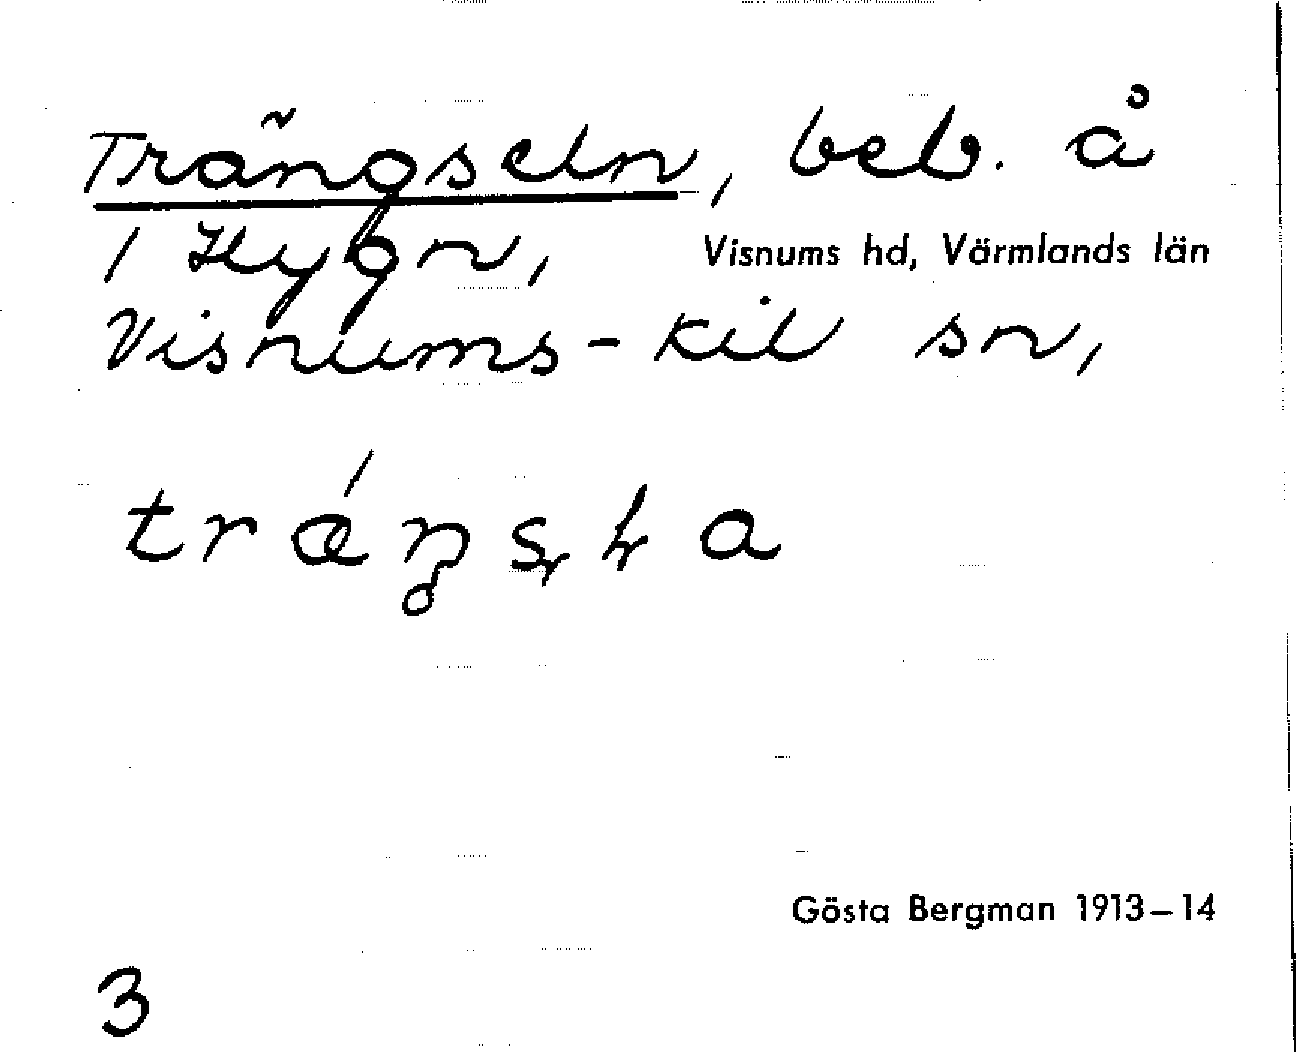 Trängseln, beb. å
1 Hygn, Visnums hd, Värmlands län
Visnums-Kil sn,
Gösta Bergman 1913–14
3